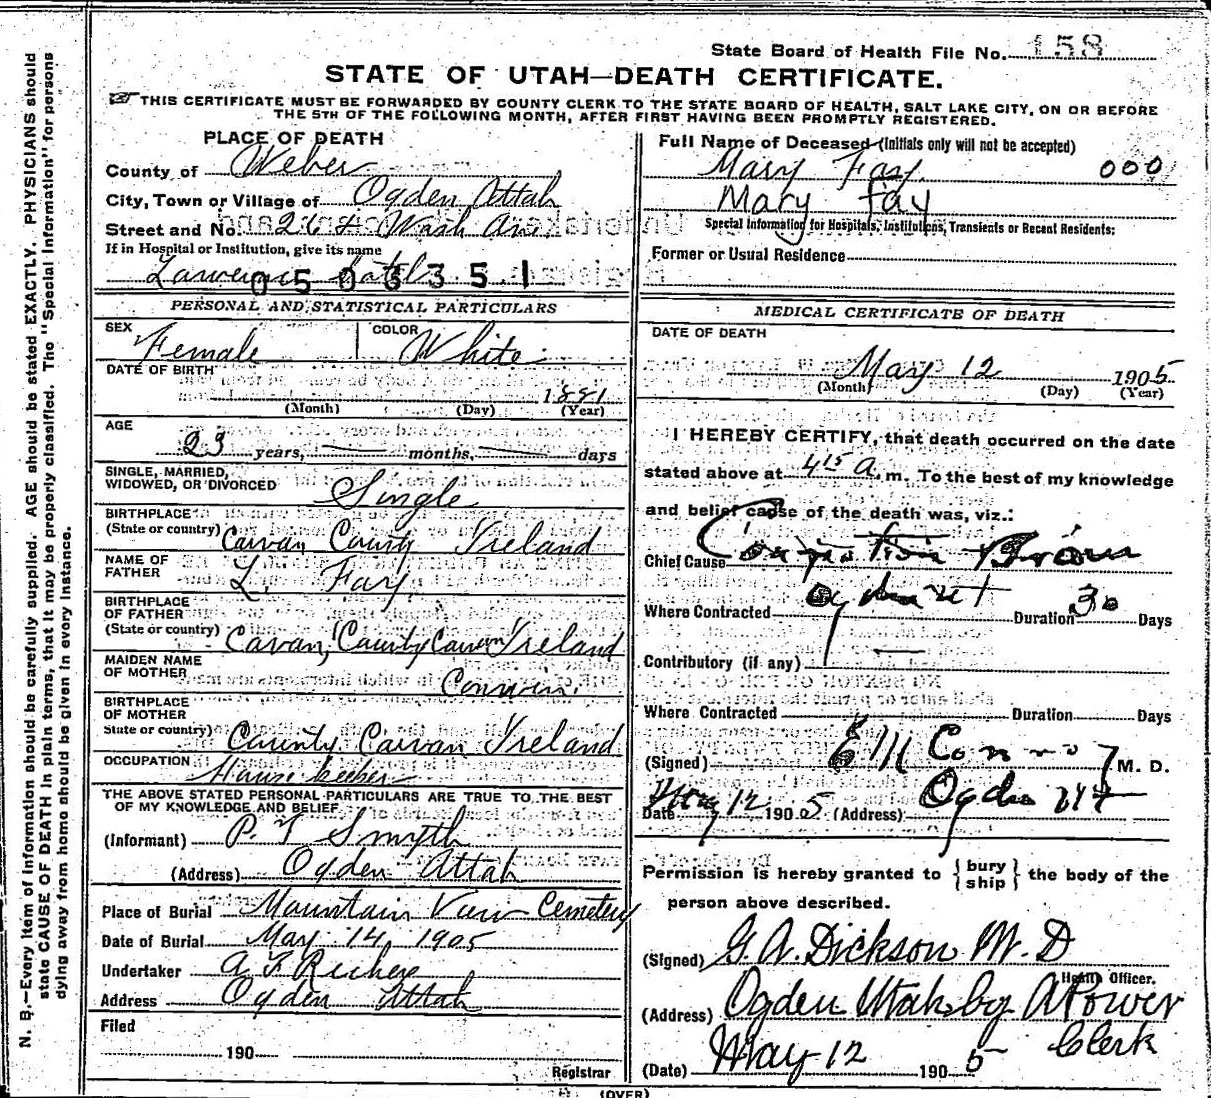 State Board of Health File No. 158
STATE OF UTAH—DEATH CERTIFICATE.
THIS CERTIFICATE MUST BE FORWARDED BY COUNTY CLERK TO THE STATE BOARD OF HEALTH, SALT LAKE CITY, ON OR BEFORE
THE 5TH OF THE FOLLOWING MONTH, AFTER FIRST HAVING BEEN PROMPTLY REGISTERED.
PLACE OF DEATH
County of Weber
City, Town or Village of Ogden Uttah
Street and No. 264 Wash Ave
If in Hospital or Institution, give its name
0503351
PERSONAL AND STATISTICAL PARTICULARS
SEX Female COLOR White
DATE OF BIRTH
1881
(Month) (Day) (Year)
AGE
23 years, months, days
SINGLE, MARRIED,
WIDOWED, OR DIVORCED Single
BIRTHPLACE
(State or country) Cavan County Ireland
NAME OF
FATHER L. Fay
BIRTHPLACE
OF FATHER
(State or country) Cavan, County Cavan Ireland
MAIDEN NAME
OF MOTHER
BIRTHPLACE
OF MOTHER
State or country) County Cavan Ireland
OCCUPATION House keeper
THE ABOVE STATED PERSONAL PARTICULARS ARE TRUE TO THE BEST
OF MY KNOWLEDGE AND BELIEF
(Informant) P. T Smyth
(Address) Ogden Uttah
Place of Burial Mountain View Cemetery
Date of Burial May 14, 1905
Undertaker
Address Ogden Uttah
Filed
190
Registrar
Full Name of Deceased (Initials only will not be accepted)
Mary Fay 000
Mary Fay
Special Information for Hospitals, Institutions, Transients or Recent Residents:
Former or Usual Residence
MEDICAL CERTIFICATE OF DEATH
DATE OF DEATH
May 12 1905
(Month) (Day) (Year)
I HEREBY CERTIFY, that death occurred on the date
stated above at 4 15 A. m. To the best of my knowledge
and belief cause of the death was, viz.:
Chief Cause
Where Contracted Duration 30 Days
Contributory (if any)
Where Contracted Duration Days
(Signed) M. D.
Date May 12 1905 (Address) Ogden
Permission is hereby granted to { bury ship } the body of the
person above described.
(Signed) G. A. Dickson M. D
Health Officer.
(Address) Ogden Utah by A Power
Clerk
(Date) May 12 1905
(OVER)
N. B.—Every item of information should be carefully supplied. AGE should be stated EXACTLY. PHYSICIANS should
state CAUSE OF DEATH in plain terms, that it may be properly classified. The "Special Information" for persons
dying away from home should be given in every instance.